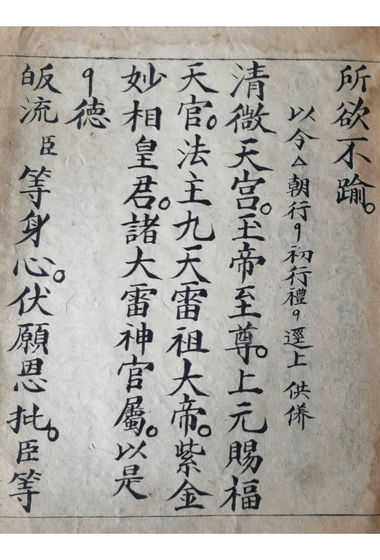 所欲不踰。
以令△朝行𠃌初行禮𠃌逕上供俻
清微天宫。玉帝至尊。上元賜福
天官。法主九天雷祖大帝。紫金
妙相皇君。諸大雷神官屬。以是
𠃌德
皈流臣等身心。伏願恩批。臣等